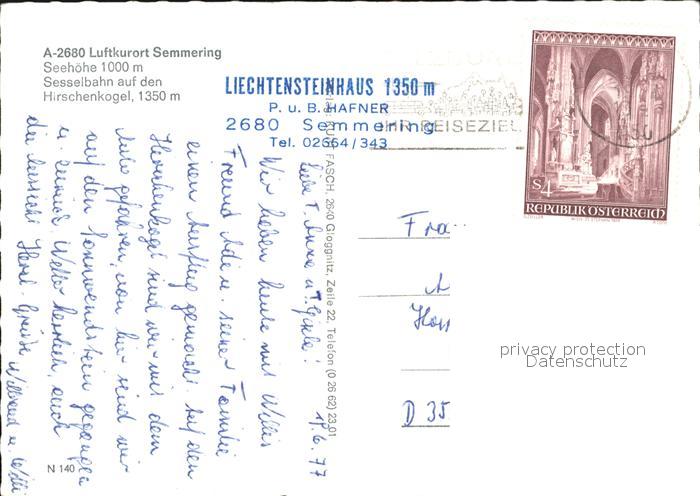 A-2680 Luftkurort Semmering
Seehöhe 1000 m
Sesselbahn auf den
Hirschenkogel, 1350 m
LIECHTENSTEINHAUS 1350 m
P. u. B. HAFNER
2680 Semmering
Tel. 02664/343
IHR REISEZIEL
S4
REPUBLIK ÖSTERREICH
FASCH, 2640 Gloggnitz, Zeile 22, Telefon (0 26 62) 23 01
Liebe T. u. T. Gisela!
17.6.77
Wir haben heute mit Willis
Freund Adi u. seiner Familie
einen Ausflug gemacht. Auf den
Hirschenkogel sind wir mit dem
Auto gefahren, von hier sind wir
auf den Sonnwendstein gegangen
u. zurück. Wetter herrlich, auch
die Aussicht. Herzl. Grüße u. Willi
D 35
privacy protection
Datenschutz
N 140